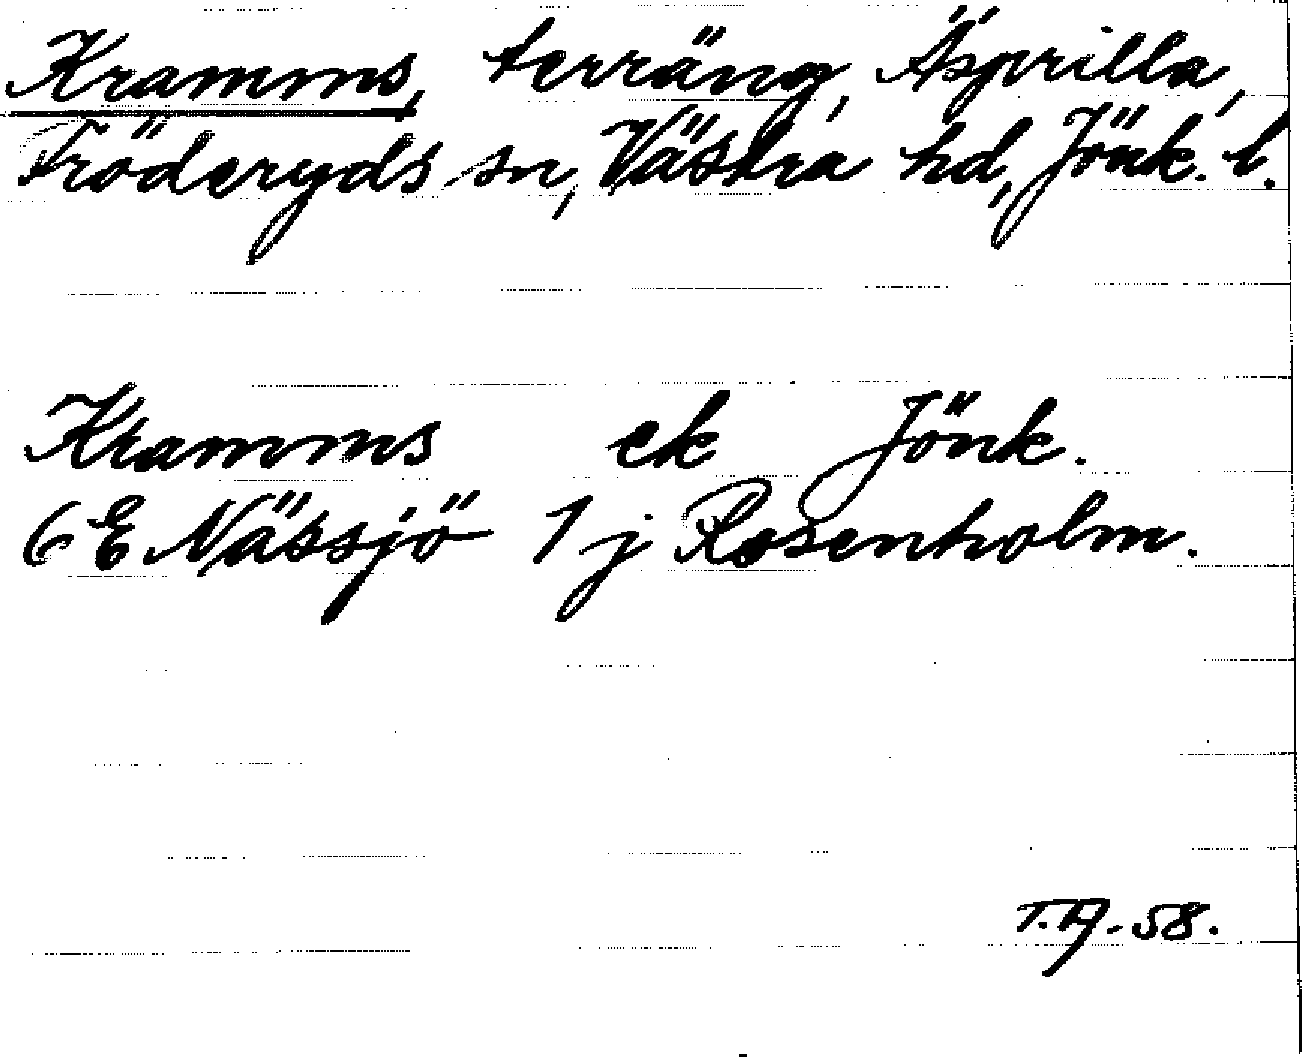 Kramms, terräng, Äsprilla,
Fröderyds sn, Västra hd, Jönk. l.
Kramms ek Jönk.
6 E Nässjö 1 j Rosenholm.
T.A.-58.